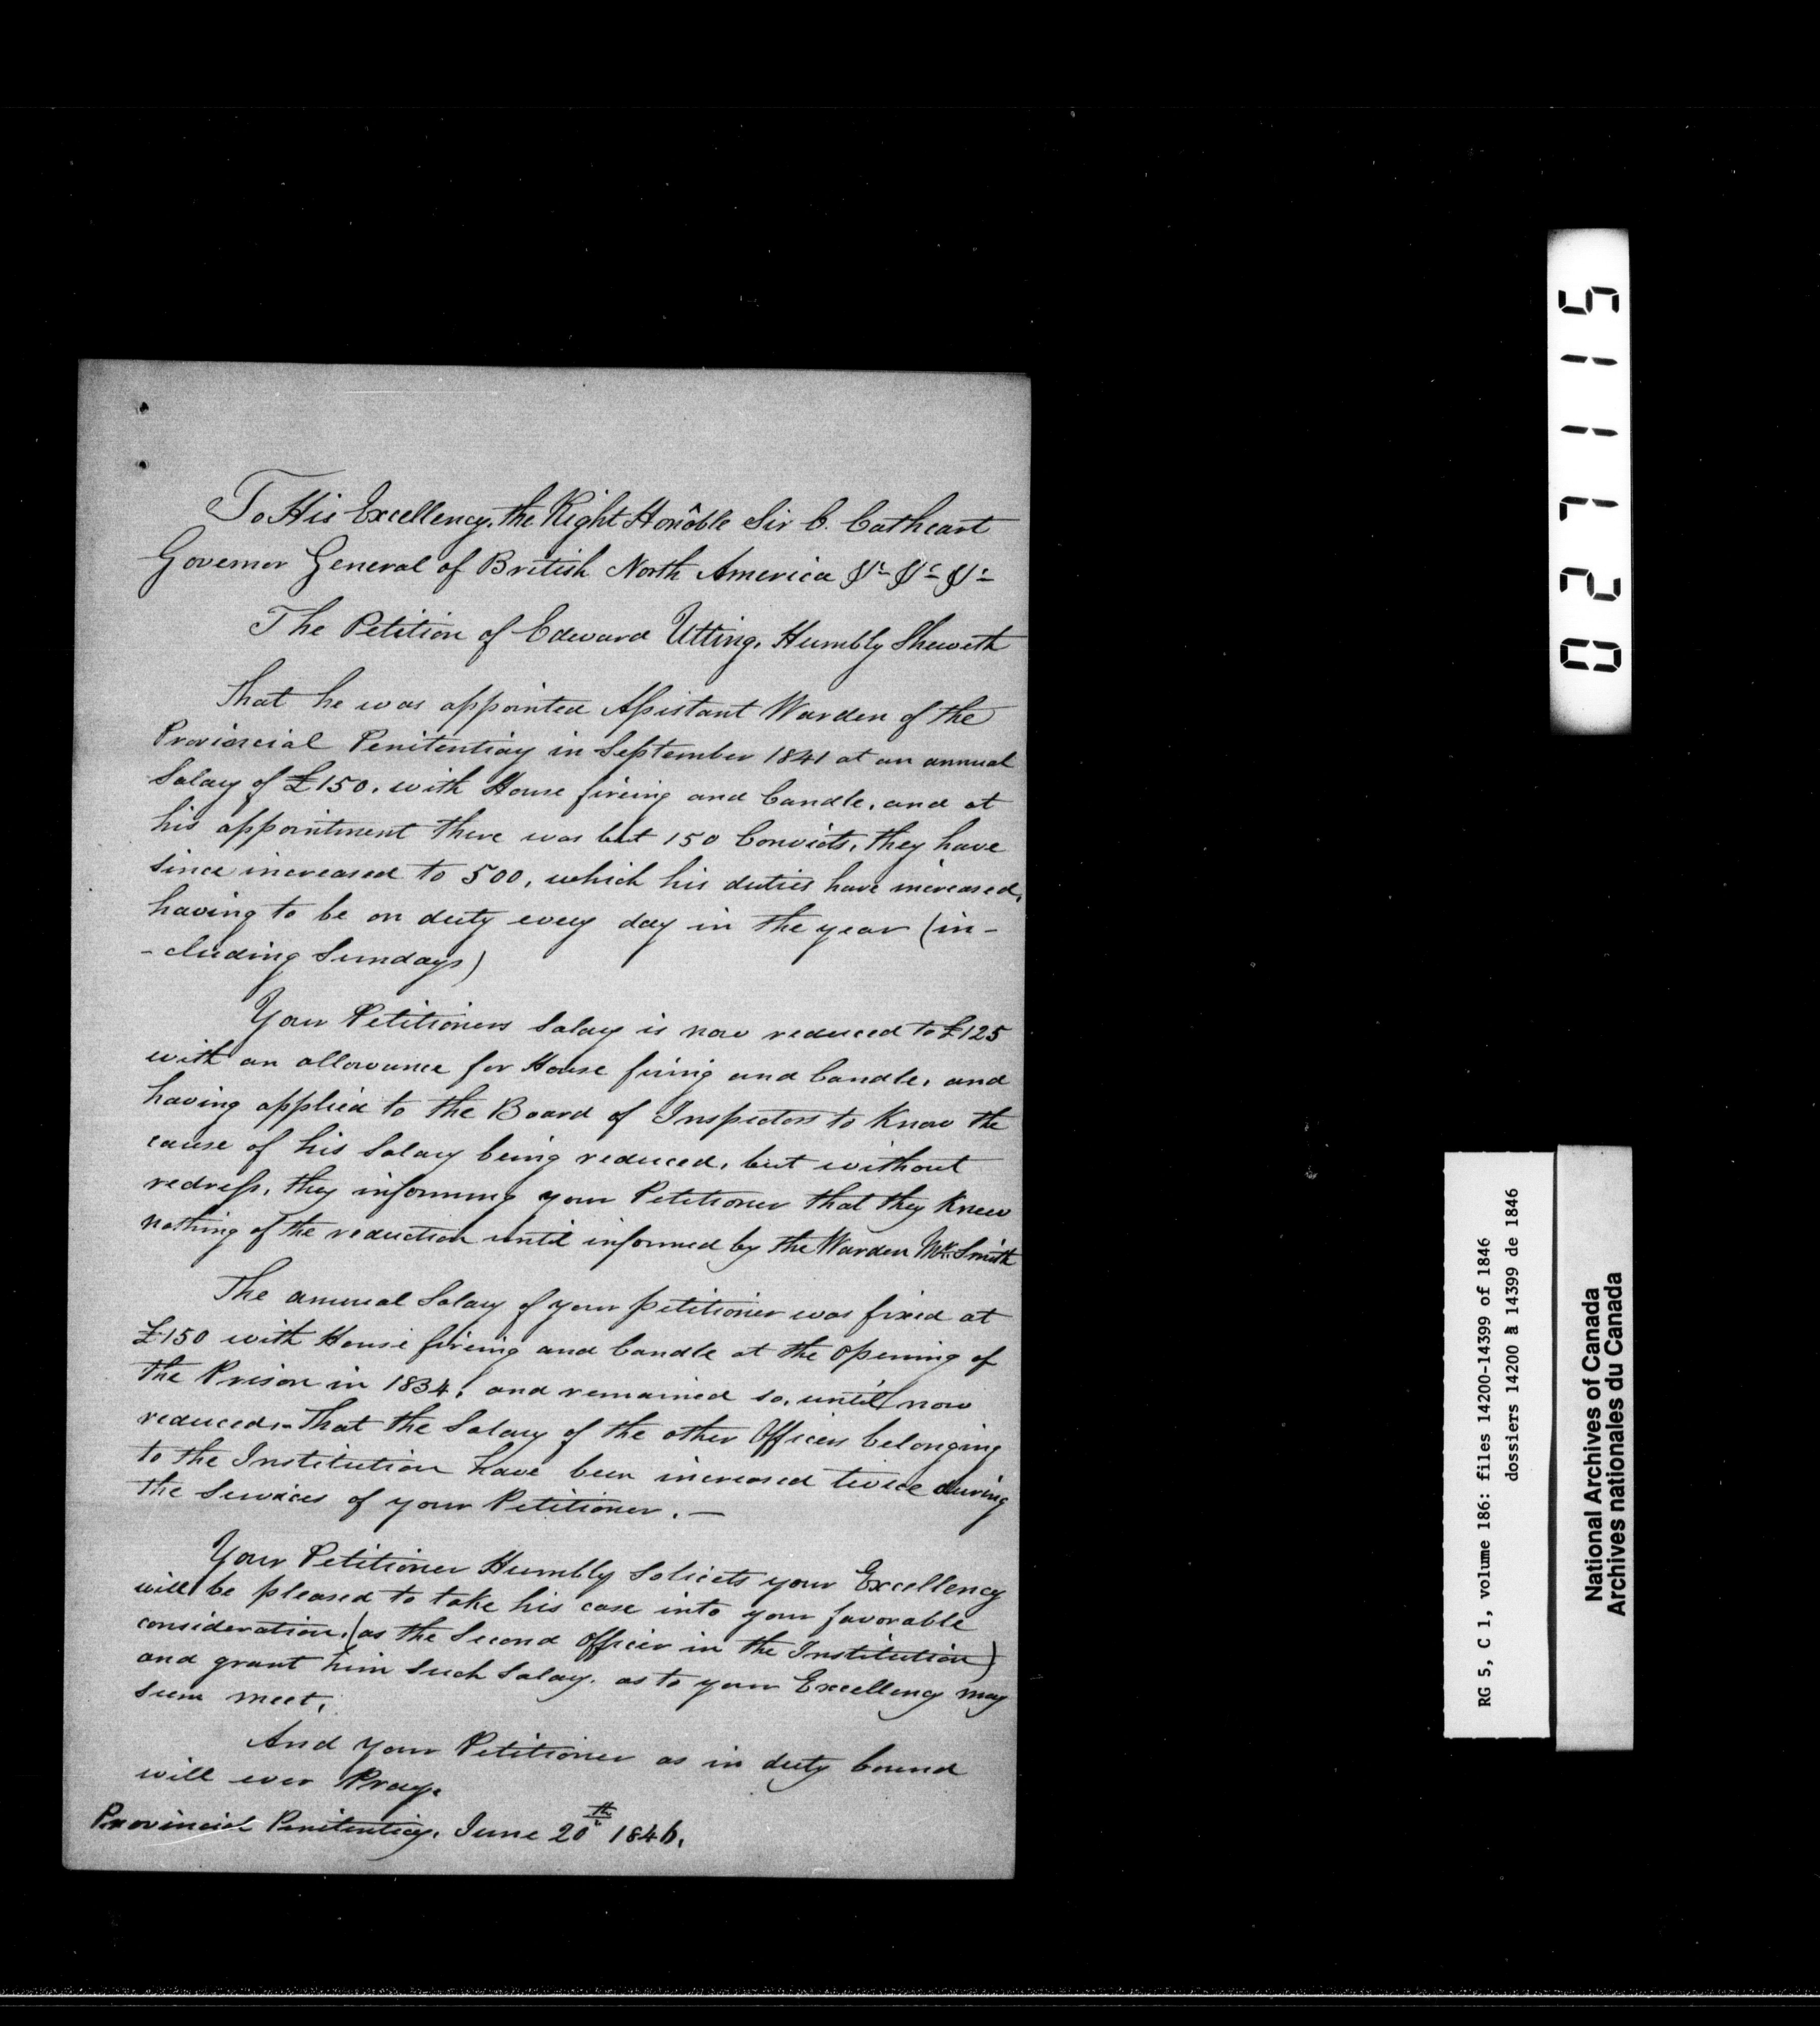 To His Excellency, the Right Honoble Sir C. Cathcart
Governor General of British North America &c &c &c
The Petition of Edward Utting, Humbly Sheweth
That he was appointed Assistant Warden of the
Provincial Penitentiay in September 1841 at an annual
Salary of £150, with House fireing and Candle, and at
his appointment there was but 150 Convicts, they have
since increased to 500, which his duties have increased,
having to be on duty every day in the year (in-
-cluding Sundays)
Your Petitioners Salary is now reduced to £125
with an allowance for House firing and Candle, and
having applied to the Board of Inspectors to Know the
cause of his Salary being reduced, but without
redress, they informing your Petitioner that they Knew
nothing of the reduction until informed by the Warden Mr. Smith
The annual Salary of your petitioner was fixed at
£150 with House fireing and Candle at the opening of
the Prison in 1834, and remained so, until now
reduced,- That the Salary of the other Officers belonging
to the Institution have been increased twice during
the Services of your Petitioner. —
Your Petitioner Humbly Solicits your Excellency
will be pleased to take his case into your favorable
consideration, (as the Second Officer in the Institution)
and grant him Such Salary, as to your Excellency may
seem meet,
And your Petitioner as in duty bound
will ever Pray.
Provincial Penitentiay, June 20th 1846,
027115
RG 5, C 1, volume 186: files 14200-14399 of 1846
dossiers 14200 à 14399 de 1846
National Archives of Canada
Archives nationales du Canada